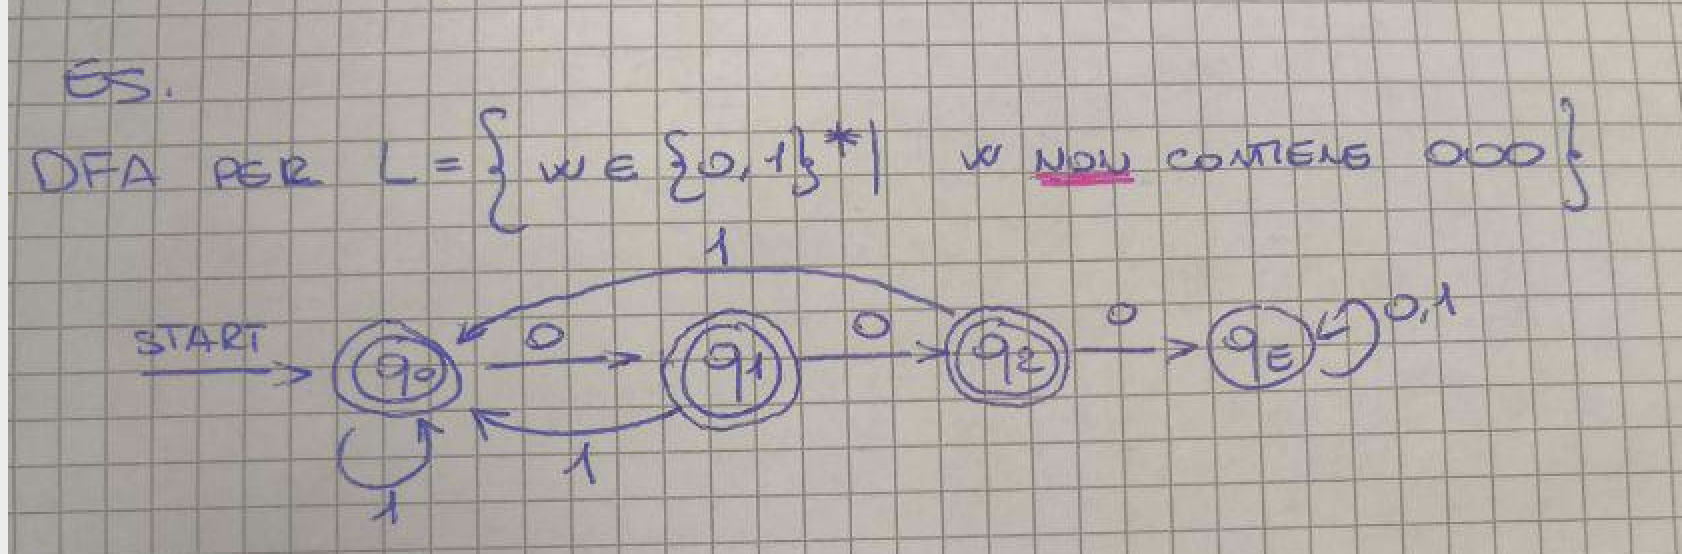 ES.
DFA PER L = { w ∈ {0,1}* | w NON CONTIENE 000 }
1
START 0 0 0 0,1
q0 q1 q2 qE
1
1